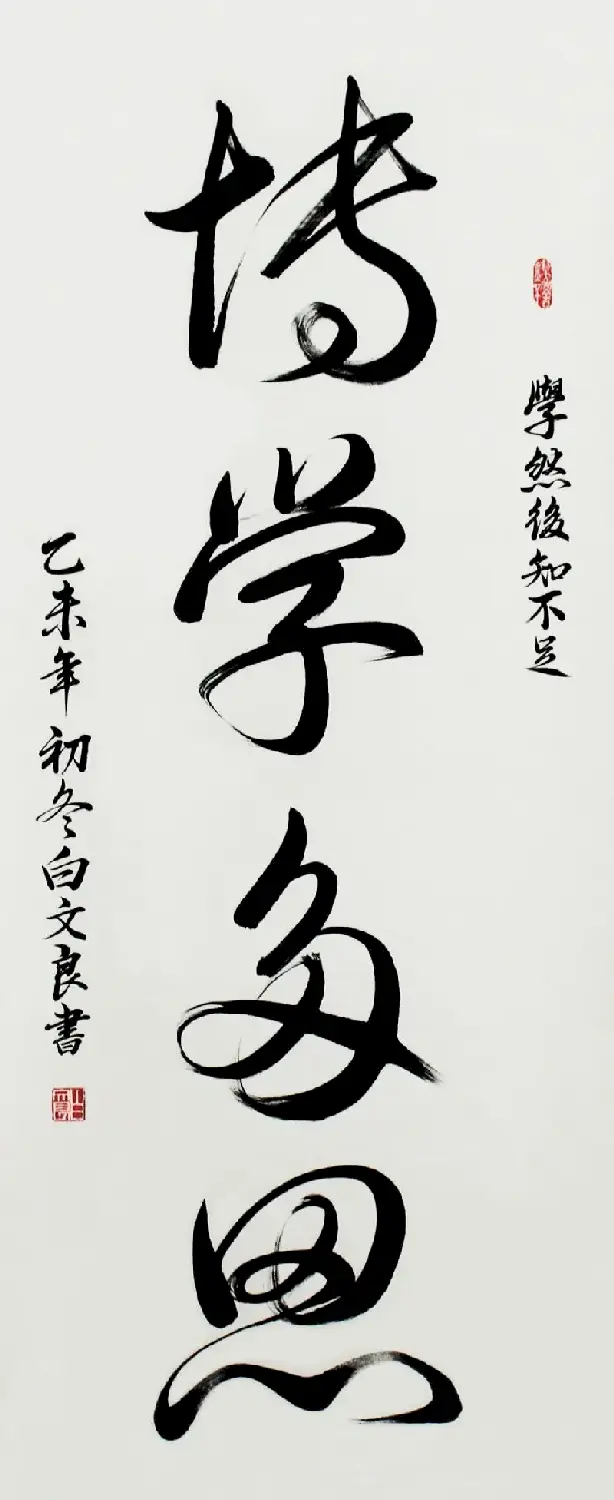 學然後知不足
博学多思
乙未年初冬白文良書